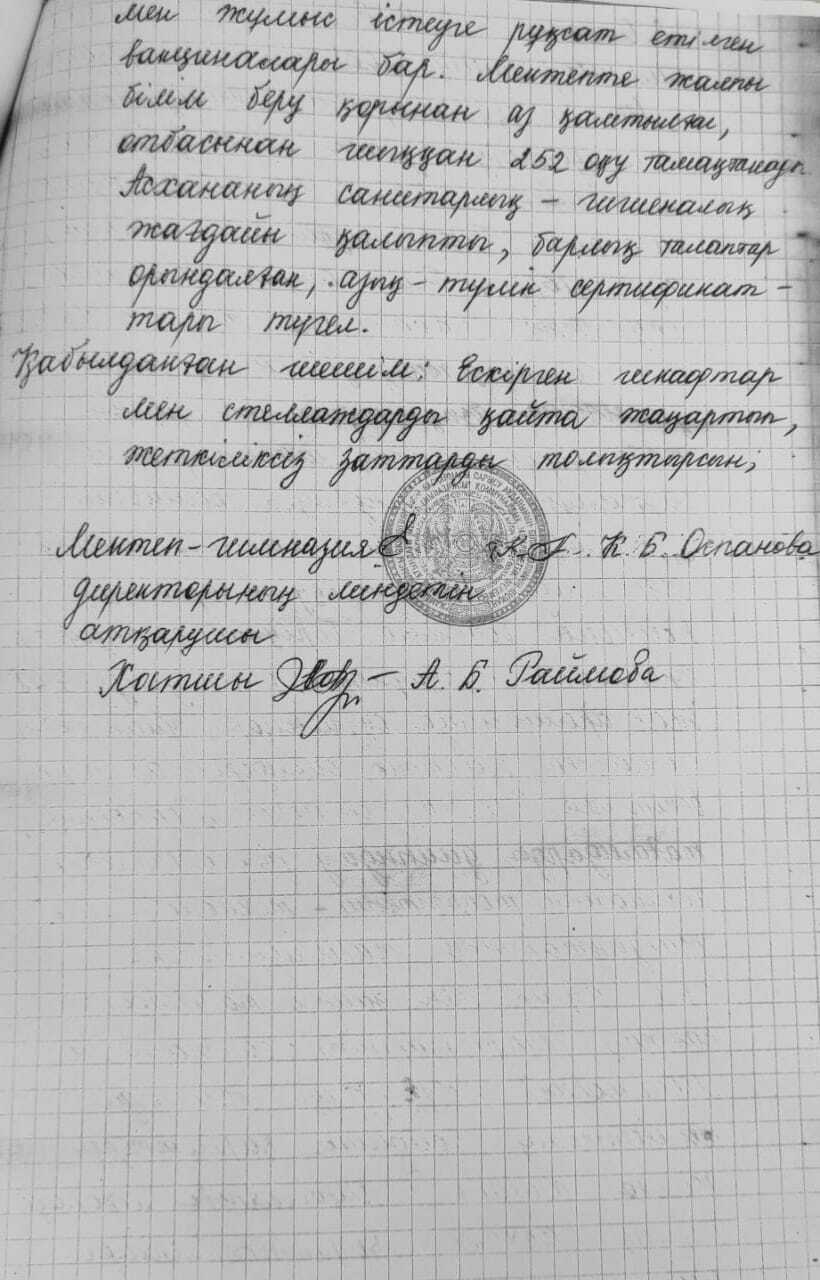 мен жұмыс істеуге рұқсат етілген
вакциналары бар. Мектепте жалпы
білім беру қорынан аз қамтылған,
отбасынан шыққан 252 оқу тамақтанады.
Асхананың санитарлық - гигиеналық
жағдайн қалыпты, барлық талаптар
орындалған, азық - түлік сертификат -
тары түгел.
Қабылданған шешім: Ескірген шкафтар
мен стеллаждарды қайта жаңартып,
жеткіліксіз заттарды толықтырсын;
Мектеп-гимназия К. Б. Оспанова
директорының міндетін
атқарушы
Хатшы — А. Б. Раймова